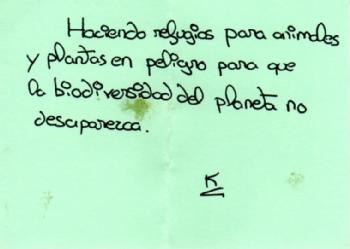 Haciendo refugios para animales
y plantas en peligro para que
la biodiversidad del planeta no
desaparezca.
K